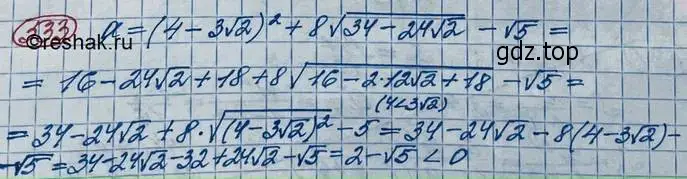 333 A = (4 - 3√2)² + 8√(34 - 24√2) - √5 =
©reshak.ru
gdz.top
= 16 - 24√2 + 18 + 8√(16 - 2·12√2 + 18) - √5 =
(4<3√2)
= 34 - 24√2 + 8·√((4 - 3√2)²) - 5 = 34 - 24√2 - 8(4 - 3√2) -
- √5 = 34 - 24√2 - 32 + 24√2 - √5 = 2 - √5 < 0